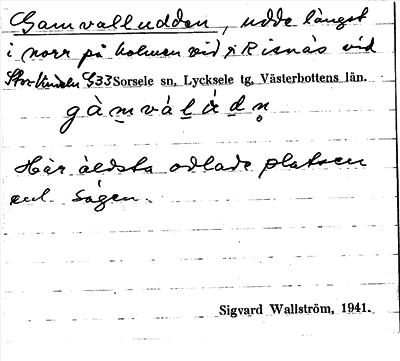 Gamvalludden, udde längst
i norr på holmen vid Risnäs vid
Storvindeln G33 Sorsele sn, Lycksele tg, Västerbottens län.
gàmválå̱dn̥
Här äldsta odlade platsen
enl. sägen.
Sigvard Wallström, 1941.